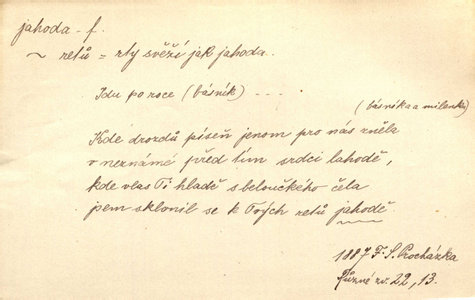 jahoda - f.
~ retů = rty svěží jak jahoda.
Jdu po roce (básník) - - - -
(básníka a milenku)
Kde drozdů píseň jenom pro nás zněla
v neznámé před tím srdci lahodě,
kde vlas Ti hladě s beloučkého čela
jsem sklonil se k Tvých retů jahodě.
1887 F. S. Procházka
Různé zv. 22, 13.